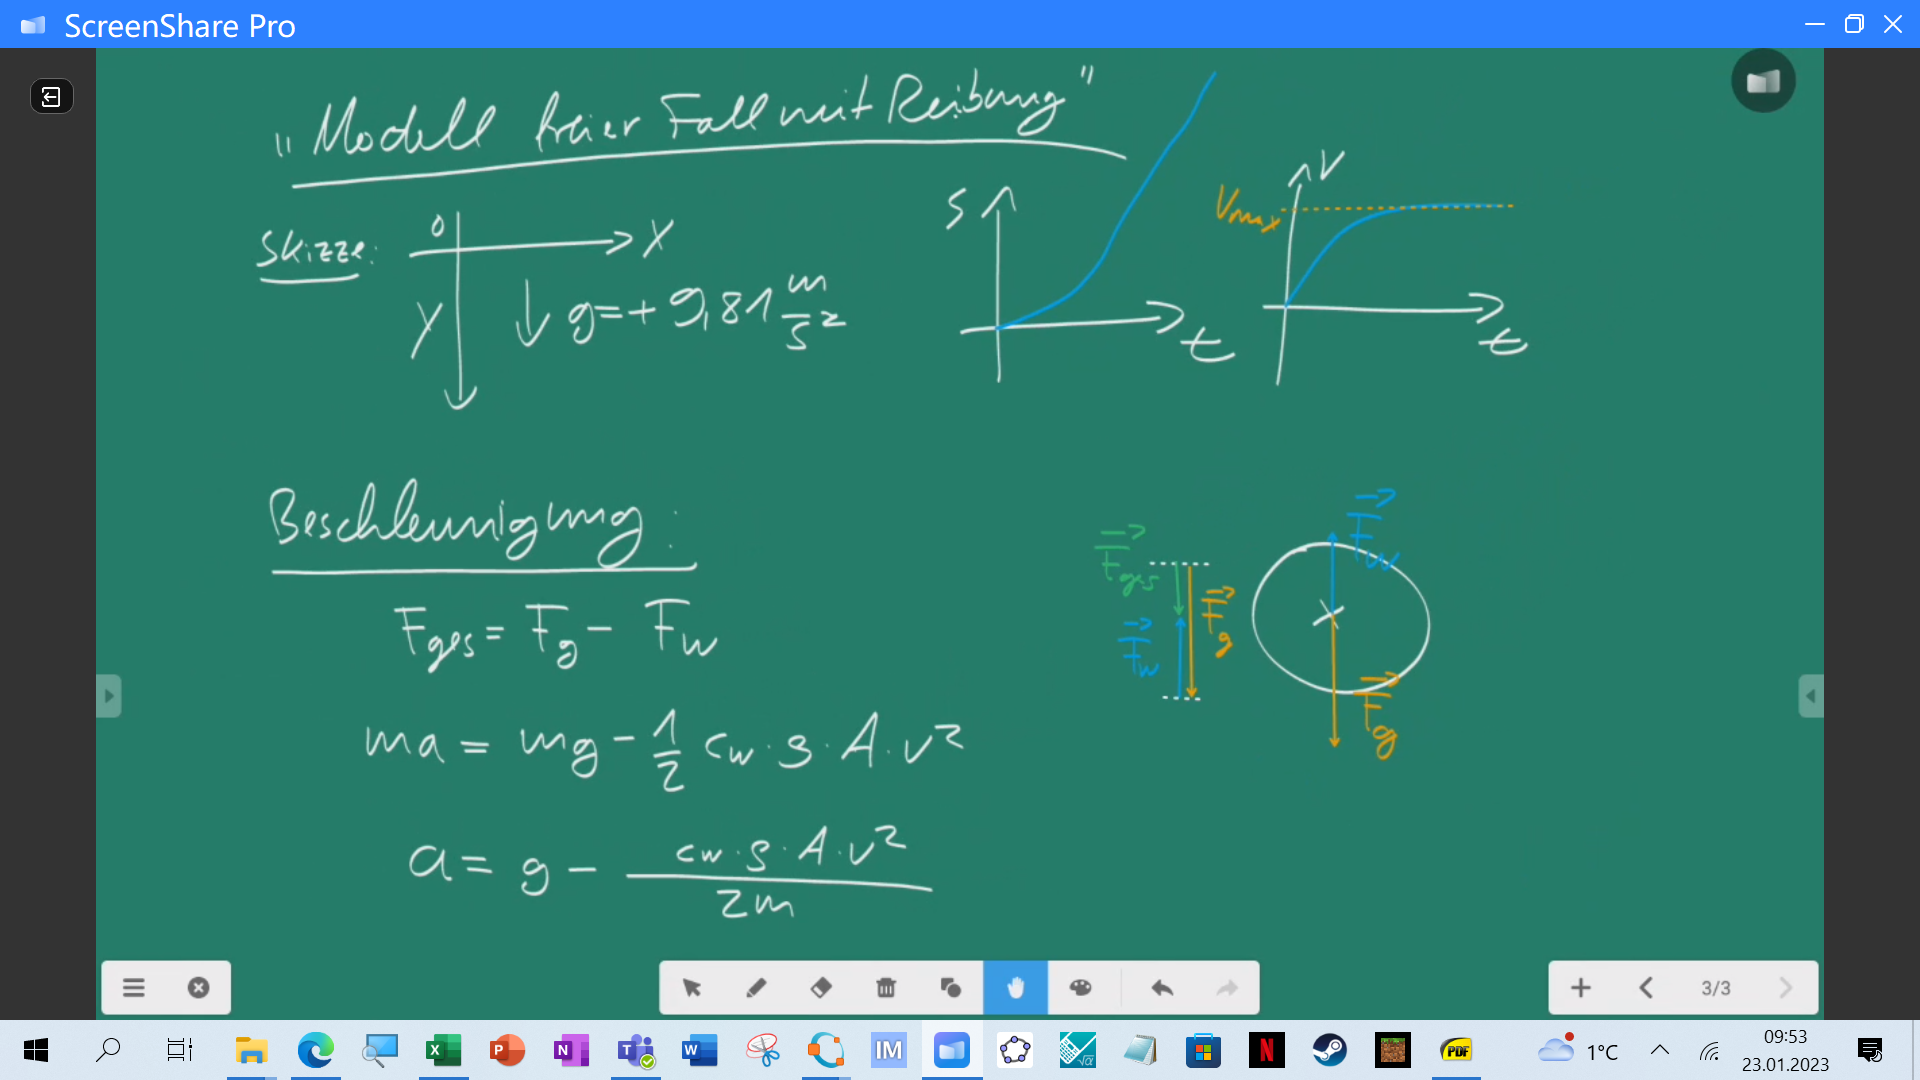 ScreenShare Pro
"Modell freier Fall mit Reibung"
Skizze:
0
X
Y
g=+9,81 m/s²
S
t
V
Vmax
t
Beschleunigung:
Fges = Fg - Fw
ma = mg - 1/2 cw · ρ · A · v²
a = g - cw · ρ · A · v² / 2m
Fges
Fw
Fg
Fw
Fg
3/3
1°C
09:53
23.01.2023
X
P
N
T
W
IM
√α
N
PDF